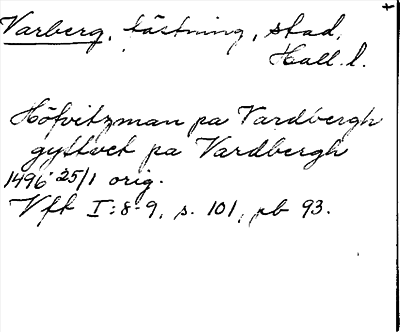 Varberg, fästning, stad,
Hall. l.
Höfvitzman pa Vardbergh
gyffvet pa Vardbergh
1496 25/1 orig.
Vfk I:8-9, s. 101, pb 93.